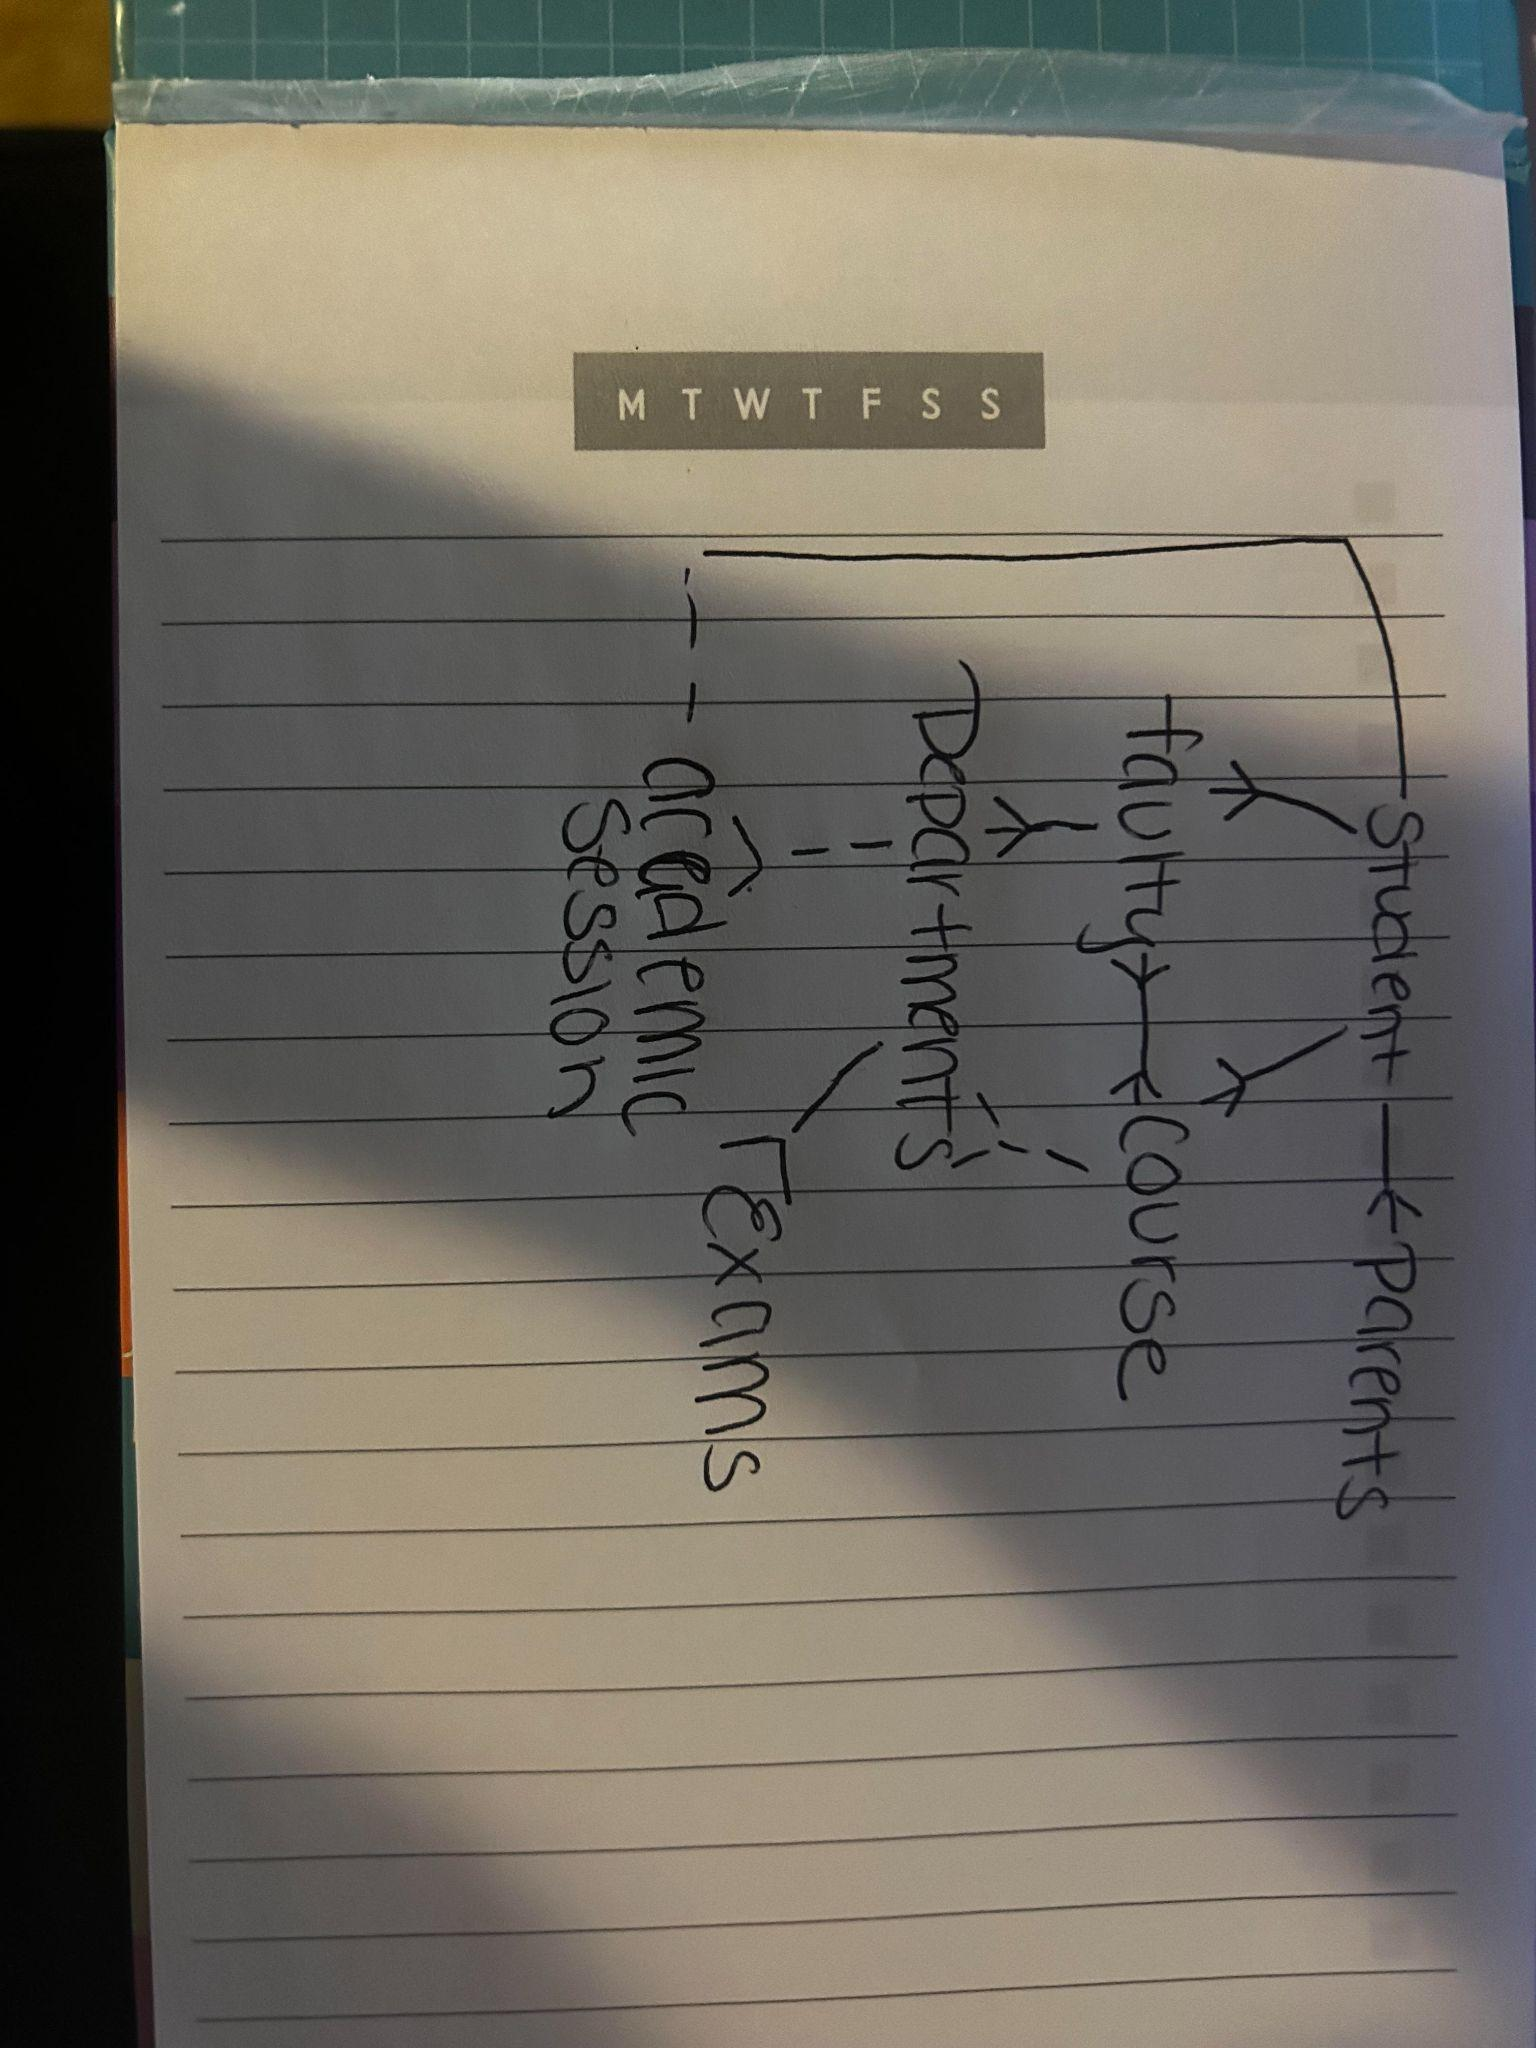 M T W T F S S
Student Parents
faulty Course
Departments
Exams
academic
Session